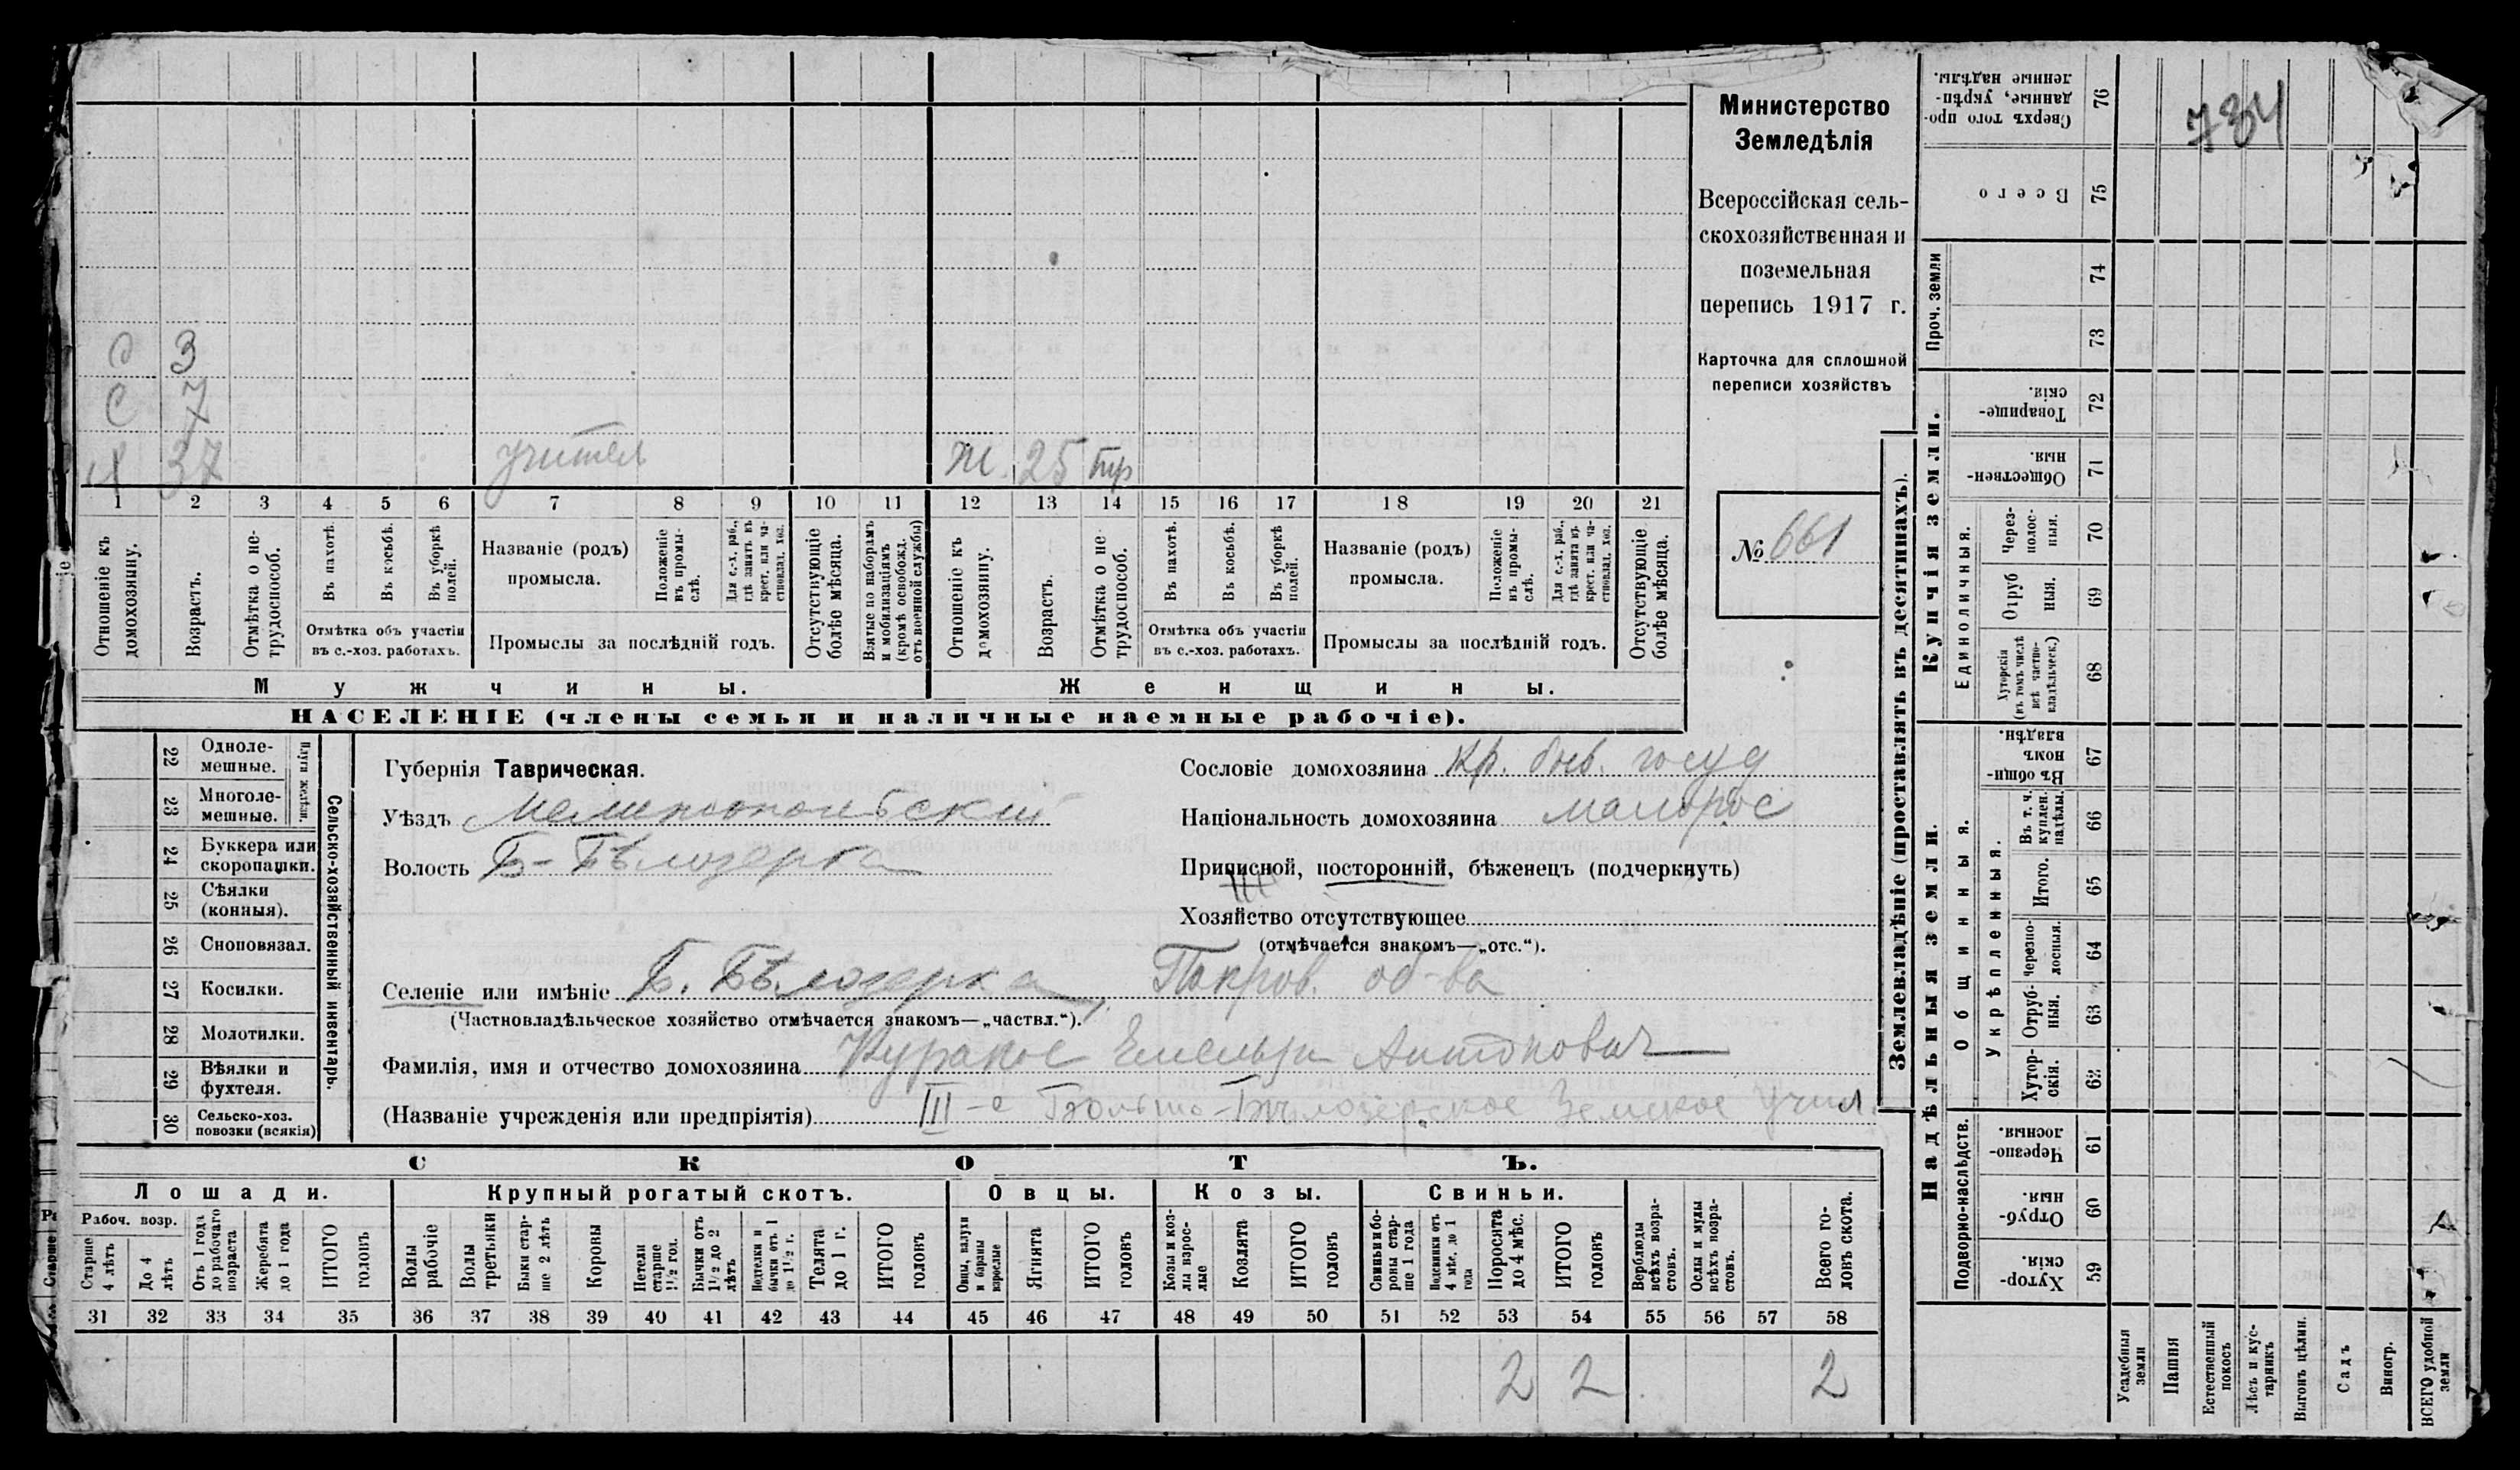 Министерство
Земледѣлія
Всероссійская сель-
скохозяйственная и
поземельная
перепись 1917 г.
Карточка для сплошной
переписи хозяйствъ
№ 661
734
3
С 7
37 учител
ж. 25 гр
1 2 3 4 5 6 7 8 9 10 11 12 13 14 15 16 17 18 19 20 21
Отношеніе къ домохозяину.
Возрастъ.
Отмѣтка о не-трудоспособ.
Въ пахотѣ.
Въ косьбѣ.
Въ уборкѣ полей.
Отмѣтка объ участіи въ с.-хоз. работахъ.
Названіе (родъ) промысла.
Положеніе въ промы-слѣ.
Для с.-х. раб., гдѣ занятъ въ крест. или ча-стновлад. хоз.
Промыслы за послѣдній годъ.
Отсутствующіе болѣе мѣсяца.
Взятые по наборамъ и мобилизаціямъ (кромѣ освобожд. отъ военной службы)
Отношеніе къ домохозяину.
Возрастъ.
Отмѣтка о не-трудоспособ.
Въ пахотѣ.
Въ косьбѣ.
Въ уборкѣ полей.
Отмѣтка объ участіи въ с.-хоз. работахъ.
Названіе (родъ) промысла.
Положеніе въ промы-слѣ.
Для с.-х. раб., гдѣ занята въ крест. или ча-стновлад. хоз.
Промыслы за послѣдній годъ.
Отсутствующіе болѣе мѣсяца.
Мужчины.
Женщины.
НАСЕЛЕНІЕ (члены семьи и наличные наемные рабочіе).
22 Одноле-мешные.
23 Многоле-мешные.
Плуги желѣзн.
24 Буккера или скоропашки.
25 Сѣялки (конныя).
26 Сноповязал.
27 Косилки.
28 Молотилки.
29 Вѣялки и фухтеля.
30 Сельско-хоз. повозки (всякія)
Сельско-хозяйственный инвентарь.
Губернія Таврическая.
Уѣздъ Мелитопольский
Волость Б-Бѣлозерка
Сословіе домохозяина Кр. быв. госуд
Національность домохозяина малорос
Приписной, посторонній, бѣженецъ (подчеркнуть)
Хозяйство отсутствующее
(отмѣчается знакомъ—„отс.“).
Селеніе или имѣніе Б. Бѣлозерка, Покров. об-ва
(Частновладѣльческое хозяйство отмѣчается знакомъ—„частвл.“).
Фамилія, имя и отчество домохозяина Емельян Антонович
(Названіе учрежденія или предпріятія) III-е Больше-Бѣлозерское Земское Учил.
СКОТЪ.
Лошади.
Рабоч. возр.
Старше 4 лѣтъ
До 4 лѣтъ
Отъ 1 года до рабочаго возраста
Жеребята до 1 года
ИТОГО головъ
Крупный рогатый скотъ.
Волы рабочіе
Волы третьяки
Быки стар-ше 2 лѣтъ
Коровы
Нетели старше 1½ год.
Бычки отъ 1½ до 2 лѣтъ
Подтелки и бычки отъ 1 до 1½ г.
Телята до 1 г.
ИТОГО головъ
Овцы.
Овцы, валухи и бараны взрослые
Ягнята
ИТОГО головъ
Козы.
Козы и коз-лы взрос-лые
Козлята
ИТОГО головъ
Свиньи.
Свиньи и бо-ровы стар-ше 1 года
Подсвинки отъ 4 мѣс. до 1 года
Поросята до 4 мѣс.
ИТОГО головъ
Верблюды всѣхъ возра-стовъ.
Ослы и мулы всѣхъ возра-стовъ.
Всего го-ловъ скота.
31 32 33 34 35 36 37 38 39 40 41 42 43 44 45 46 47 48 49 50 51 52 53 54 55 56 57 58
2 2 2
Землевладѣніе (проставлять въ десятинахъ).
Купчія земли.
Надѣльныя земли.
Сверхъ того про-данные, укрѣп-ленные надѣлы. 76
Всего 75
Проч. земли
74
73
Товарище-скія. 72
Обществен-ныя. 71
Единоличныя.
Через-полос-ныя. 70
Отруб ныя. 69
Хуторскія (въ томъ числѣ всѣ частно-владѣльческ.) 68
Общинныя.
Въ общи-номъ владѣн. 67
Укрѣпленныя.
Въ т. ч. куплен. надѣлы. 66
Итого. 65
Черезпо-лосныя. 64
Отруб-ныя. 63
Хутор-скія. 62
Подворно-наслѣдств.
Черезпо-лосныя. 61
Отруб-ныя. 60
Хутор-скія. 59
Усадебныя земли
Пашня
Естественный покосъ
Лѣсъ и кус-тарникъ
Выгонъ цѣлин.
Садъ
Виногр.
ВСЕГО удобной земли